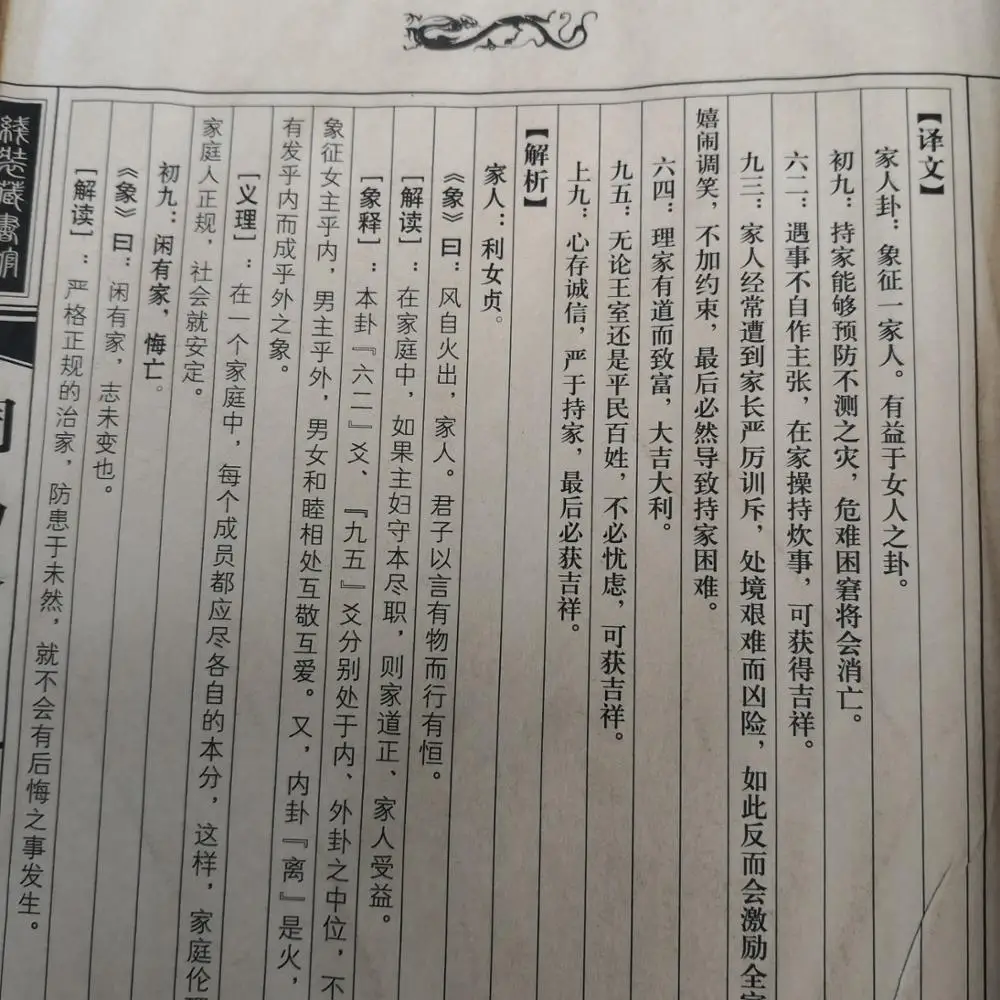 【译文】
家人卦：象征一家人。有益于女人之卦。
初九：持家能够预防不测之灾，危难困窘将会消亡。
六二：遇事不自作主张，在家操持炊事，可获得吉祥。
九三：家人经常遭到家长严厉训斥，处境艰难而凶险，如此反而会激励全家
嬉闹调笑，不加约束，最后必然导致持家困难。
六四：理家有道而致富，大吉大利。
九五：无论王室还是平民百姓，不必忧虑，可获吉祥。
上九：心存诚信，严于持家，最后必获吉祥。
【解析】
家人：利女贞。
《象》曰：风自火出，家人。君子以言有物而行有恒。
［解读］：在家庭中，如果主妇守本尽职，则家道正、家人受益。
［象释］：本卦『六二』爻、『九五』爻分别处于内、外卦之中位，不
象征女主乎内，男主乎外，男女和睦相处互敬互爱。又，内卦『离』是火，
有发乎内而成乎外之象。
［义理］：在一个家庭中，每个成员都应尽各自的本分，这样，家庭伦理
家庭人正规，社会就安定。
初九：闲有家，悔亡。
《象》曰：闲有家，志未变也。
［解读］：严格正规的治家，防患于未然，就不会有后悔之事发生。
线装藏书馆